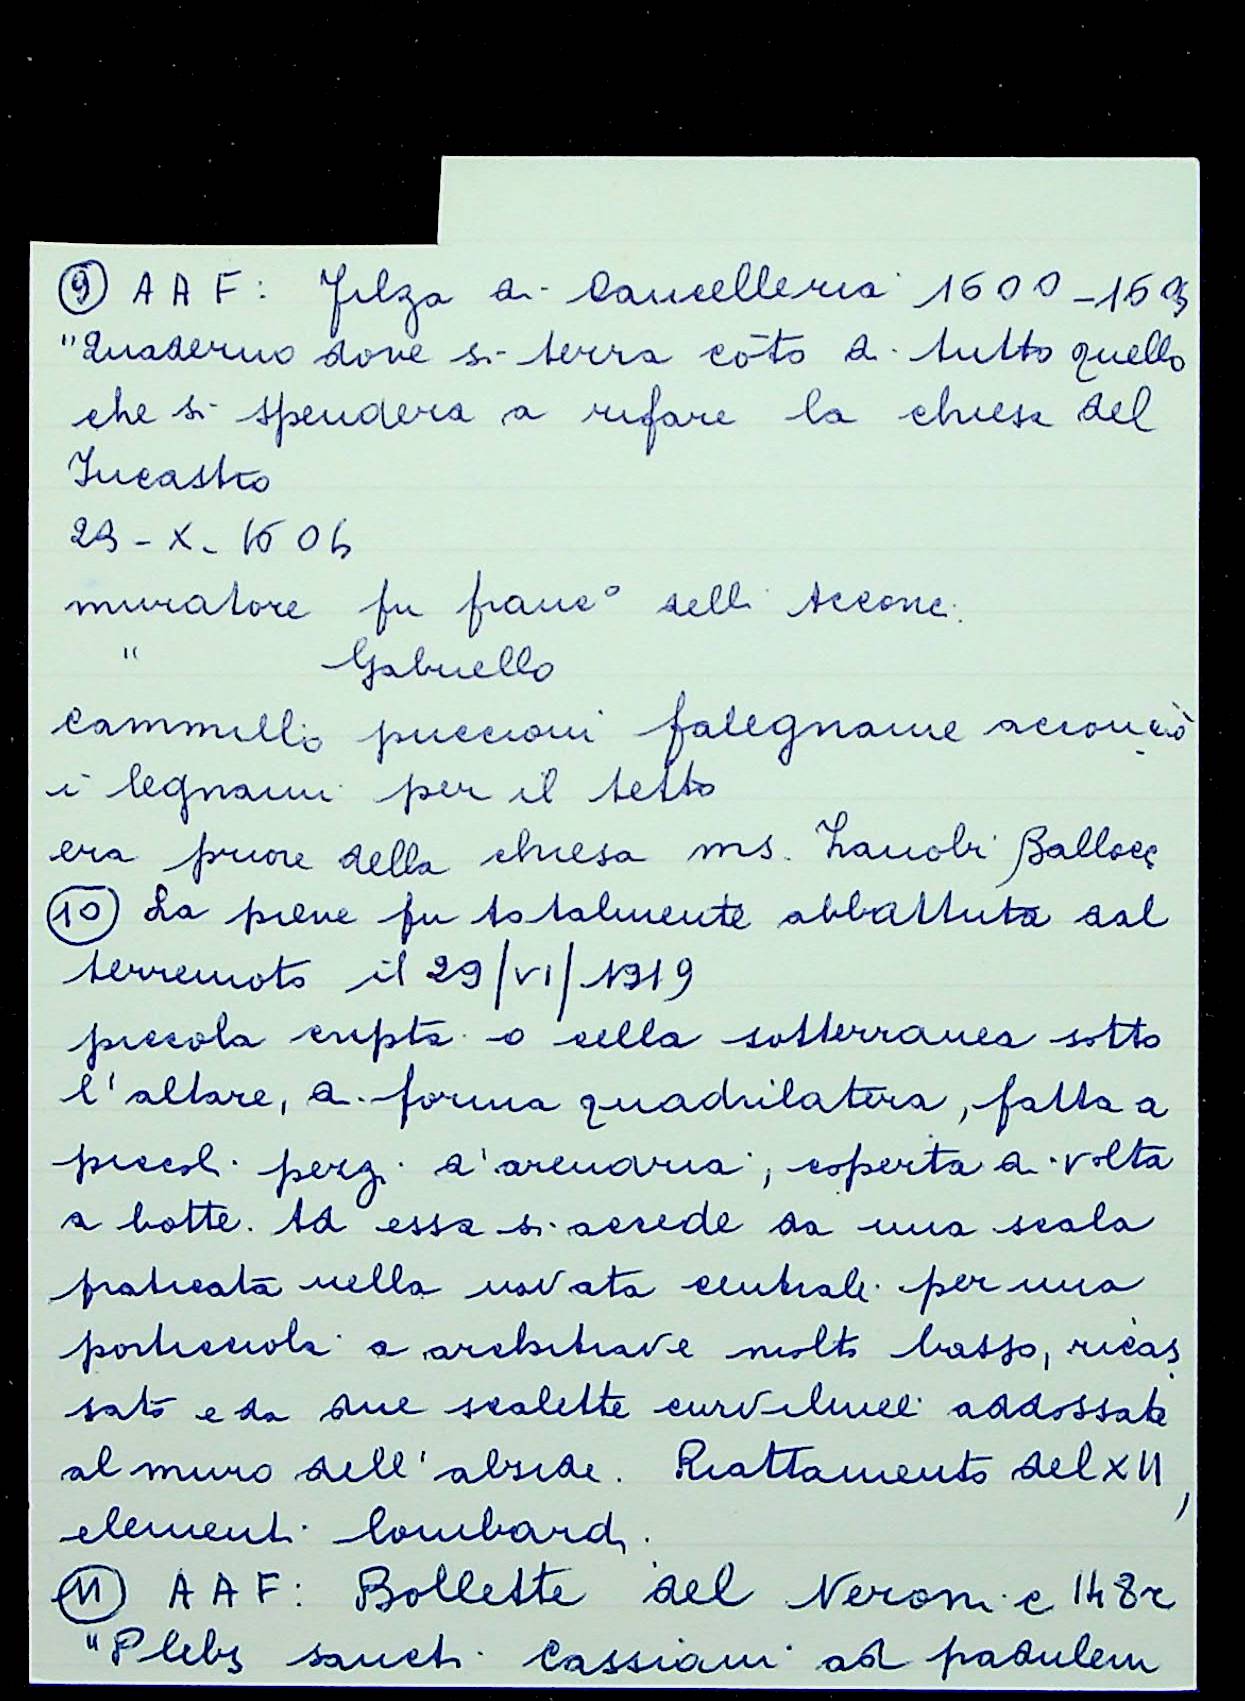 ⑨ A A F: Filza di Cancelleria 1600-1609
"Quaderno dove si terra cōto di tutto quello
che si spendera a rifare la chiesa del
Incastro
29-X-1604
muratore fu franc° delli
" Gabriello
cammillo puccioni falegname acconciò
i legnami per il tetto
era priore della chiesa ms. Zanobi Ballocc
⑩ La pieve fu totalmente abbattuta dal
terremoto il 29/VI/1919
piccola cripta o cella sotterranea sotto
l'altare, di forma quadrilatera, fatta a
piccoli pezzi d'arenaria, coperta di volta
a botte. Ad essa si accede da una scala
praticata nella navata centrale per una
porticciola a architrave molto basso, ricas
sato e da due scalette curvilinee addossate
al muro dell'abside. Riattamento del XII,
elementi lombardi.
⑪ A A F: Bollette del Neroni c 148r
"Plebs sancti Cassiani ad padulem